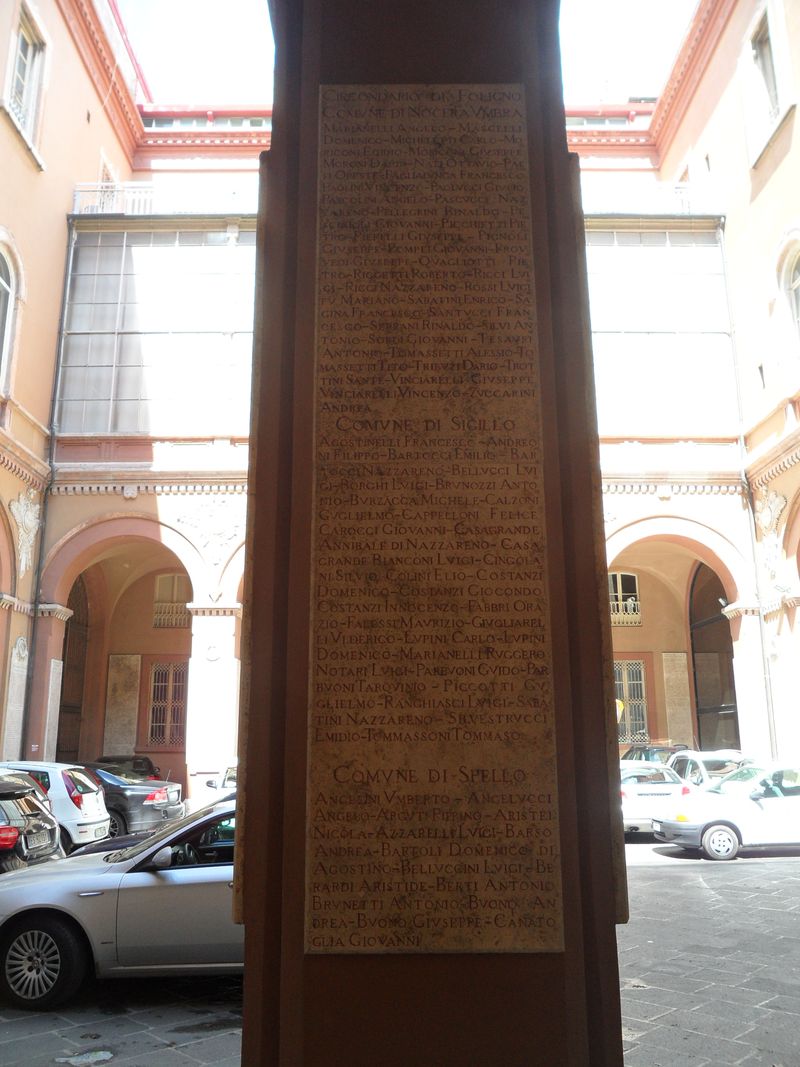 CIRCONDARIO DI FOLIGNO
COMVNE DI NOCERA VMBRA
MARIANELLI ANGELO - MASCELLI
DOMENICO - MICHELETTI CARLO - MO
RICONI EGIDIO - MORICONI GIVSEPPE
MORONI DAVID - NATI OTTAVIO - PAC
CI ORESTE - PAGLIALVNGA FRANCESCO
PAOLINI VINCENZO - PAOLVCCI GIVLIO
PASCOLINI ANGELO - PASCVCCI NAZ
ZARENO - PELLEGRINI RINALDO - PE
GIOVANNI - PICCHIETTI PIE
TRO - PIERELLI GIVSEPPE - PIGNOLI
GIVSEPPE - POMPEI GIOVANNI - PROV
VEDI GIVSEPPE - QVAGLIOTTI PIE
TRO - RIGGETTI ROBERTO - RICCI LVI
GI - RICCI NAZZARENO - ROSSI LVIGI
FV MARIANO - SABATINI ENRICO - SA
GINA FRANCESCO - SANTVCCI FRAN
CESCO - SERRANI RINALDO - SILVI AN
TONIO - SORDI GIOVANNI - TESAVRI
ANTONIO - TOMASSETTI ALESSIO - TO
MASSETTI TITO - TREVZZI DARIO - TROT
TINI SANTE - VINCIARELLI GIVSEPPE
VINCIARELLI VINCENZO - ZVCCARINI
ANDREA
COMVNE DI SIGILLO
AGOSTINELLI FRANCESCO - ANDREO
NI FILIPPO - BARTOCCI EMILIO - BAR
TOCCI NAZZARENO - BELLVCCI LVI
GI - BORGHI LVIGI - BRVNOZZI ANTO
NIO - BVRZACCA MICHELE - CALZONI
GVGLIELMO - CAPPELLONI FELICE
CAROCCI GIOVANNI - CASAGRANDE
ANNIBALE DI NAZZARENO - CASA
GRANDE BIANCONI LVIGI - CINGOLA
NI SILVIO - COLINI ELIO - COSTANZI
DOMENICO - COSTANZI GIOCONDO
COSTANZI INNOCENZO - FABBRI ORA
ZIO - FALESSI MAVRIZIO - GVGLIAREL
LI VLDERICO - LVPINI CARLO - LVPINI
DOMENICO - MARIANELLI RVGGERO
NOTARI LVIGI - PARBVONI GVIDO - PAR
BVONI TARQVINIO - PICCOTTI GV
GLIELMO - RANGHIASCI LVIGI - SABA
TINI NAZZARENO - SILVESTRVCCI
EMIDIO - TOMMASSONI TOMMASO
COMVNE DI SPELLO
ANGELINI VMBERTO - ANGELVCCI
ANGELO - ARGVTI PIPPINO - ARISTEI
NICOLA - AZZARELLI LVIGI - BARSO
ANDREA - BARTOLI DOMENICO DI
AGOSTINO - BELLVCCINI LVIGI - BE
RARDI ARISTIDE - BERTI ANTONIO
BRVNETTI ANTONIO - BVONO AN
DREA - BVONO GIVSEPPE - CANATO
GLIA GIOVANNI